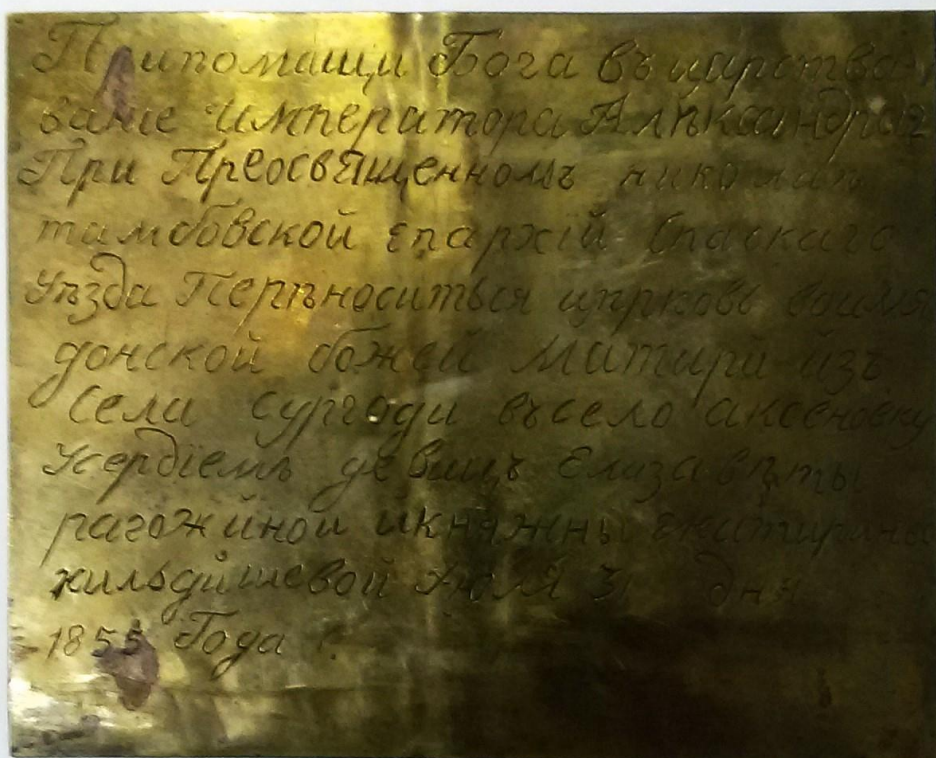 Припомащи Бога въ царствова
вание Императора Алѣксандра 2
При Преосвященномъ николаи
тамбовской епархій спаскаго
Уѣзда Перѣноситься цѣрковь воимя
донской божей Матири изъ
Села сургоди въсело аксеновку
Усердіемъ девицъ Елизавѣты
рагожиной и княжны Екатирины
кильдишевой Июля 31 дня
1855 Года